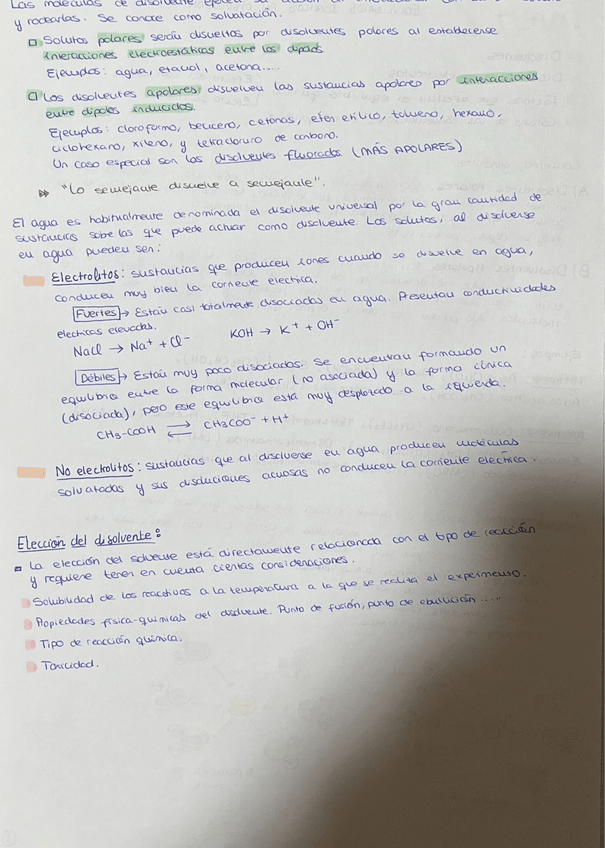 Las moléculas de disolvente
y rodearlas. Se conoce como solvatación.
Solutos polares serán disueltos por disolventes polares al establecerse
interacciones electroestáticas entre los dipolos
Ejemplos: agua, etanol, acetona....
Los disolventes apolares disuelven las sustancias apolares por interacciones
entre dipolos inducidos.
Ejemplos: cloroformo, benceno, cetonas, éter etílico, tolueno, hexano,
ciclohexano, xileno, y tetracloruro de carbono.
Un caso especial son los disolventes fluorados (MÁS APOLARES)
"Lo semejante disuelve a semejante".
El agua es habitualmente denominada el disolvente universal por la gran cantidad de
sustancias sobre las que puede actuar como disolvente. Los solutos, al disolverse
en agua pueden ser:
Electrolitos: sustancias que producen iones cuando se disuelve en agua,
conducen muy bien la corriente electrica.
Fuertes → Están casi totalmente disociadas en agua. Presentan conductividades
electricas elevadas.
NaCl → Na⁺ + Cl⁻ KOH → K⁺ + OH⁻
Débiles → Están muy poco disociados. Se encuentran formando un
equilibrio entre la forma molecular (no asociada) y la forma iónica
(disociada), pero este equilibrio está muy desplazado a la izquierda.
CH₃-COOH ⇄ CH₃COO⁻ + H⁺
No electrolitos: sustancias que al disolverse en agua producen moléculas
solvatadas y sus disoluciones acuosas no conducen la corriente eléctrica.
Elección del disolvente:
La elección del solvente está directamente relacionada con el tipo de reacción
y requiere tener en cuenta ciertas consideraciones.
Solubilidad de los reactivos a la temperatura a la que se realiza el experimento.
Propiedades física-químicas del disolvente. Punto de fusión, punto de ebullición ....
Tipo de reacción química.
Toxicidad.